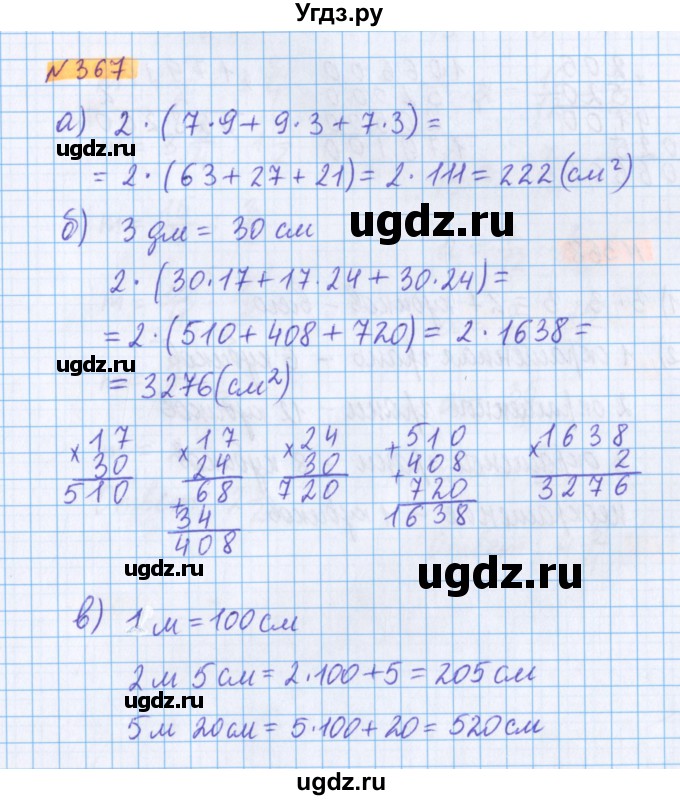 Угдз.ру
№ 367
а) 2 · (7 · 9 + 9 · 3 + 7 · 3) =
ugdz.ru
= 2 · (63 + 27 + 21) = 2 · 111 = 222 (см²)
б) 3 дм = 30 см
ugdz.ru
2 · (30 · 17 + 17 · 24 + 30 · 24) =
= 2 · (510 + 408 + 720) = 2 · 1638 =
ugdz.ru
= 3276 (см²)
× 17 × 17 × 24 + 510 × 1638
30 24 30 + 408 2
510 + 68 720 720 3276
34 1638
408
ugdz.ru
ugdz.ru
в) 1 м = 100 см
2 м 5 см = 2 · 100 + 5 = 205 см
ugdz.ru
5 м 20 см = 5 · 100 + 20 = 520 см
ugdz.ru